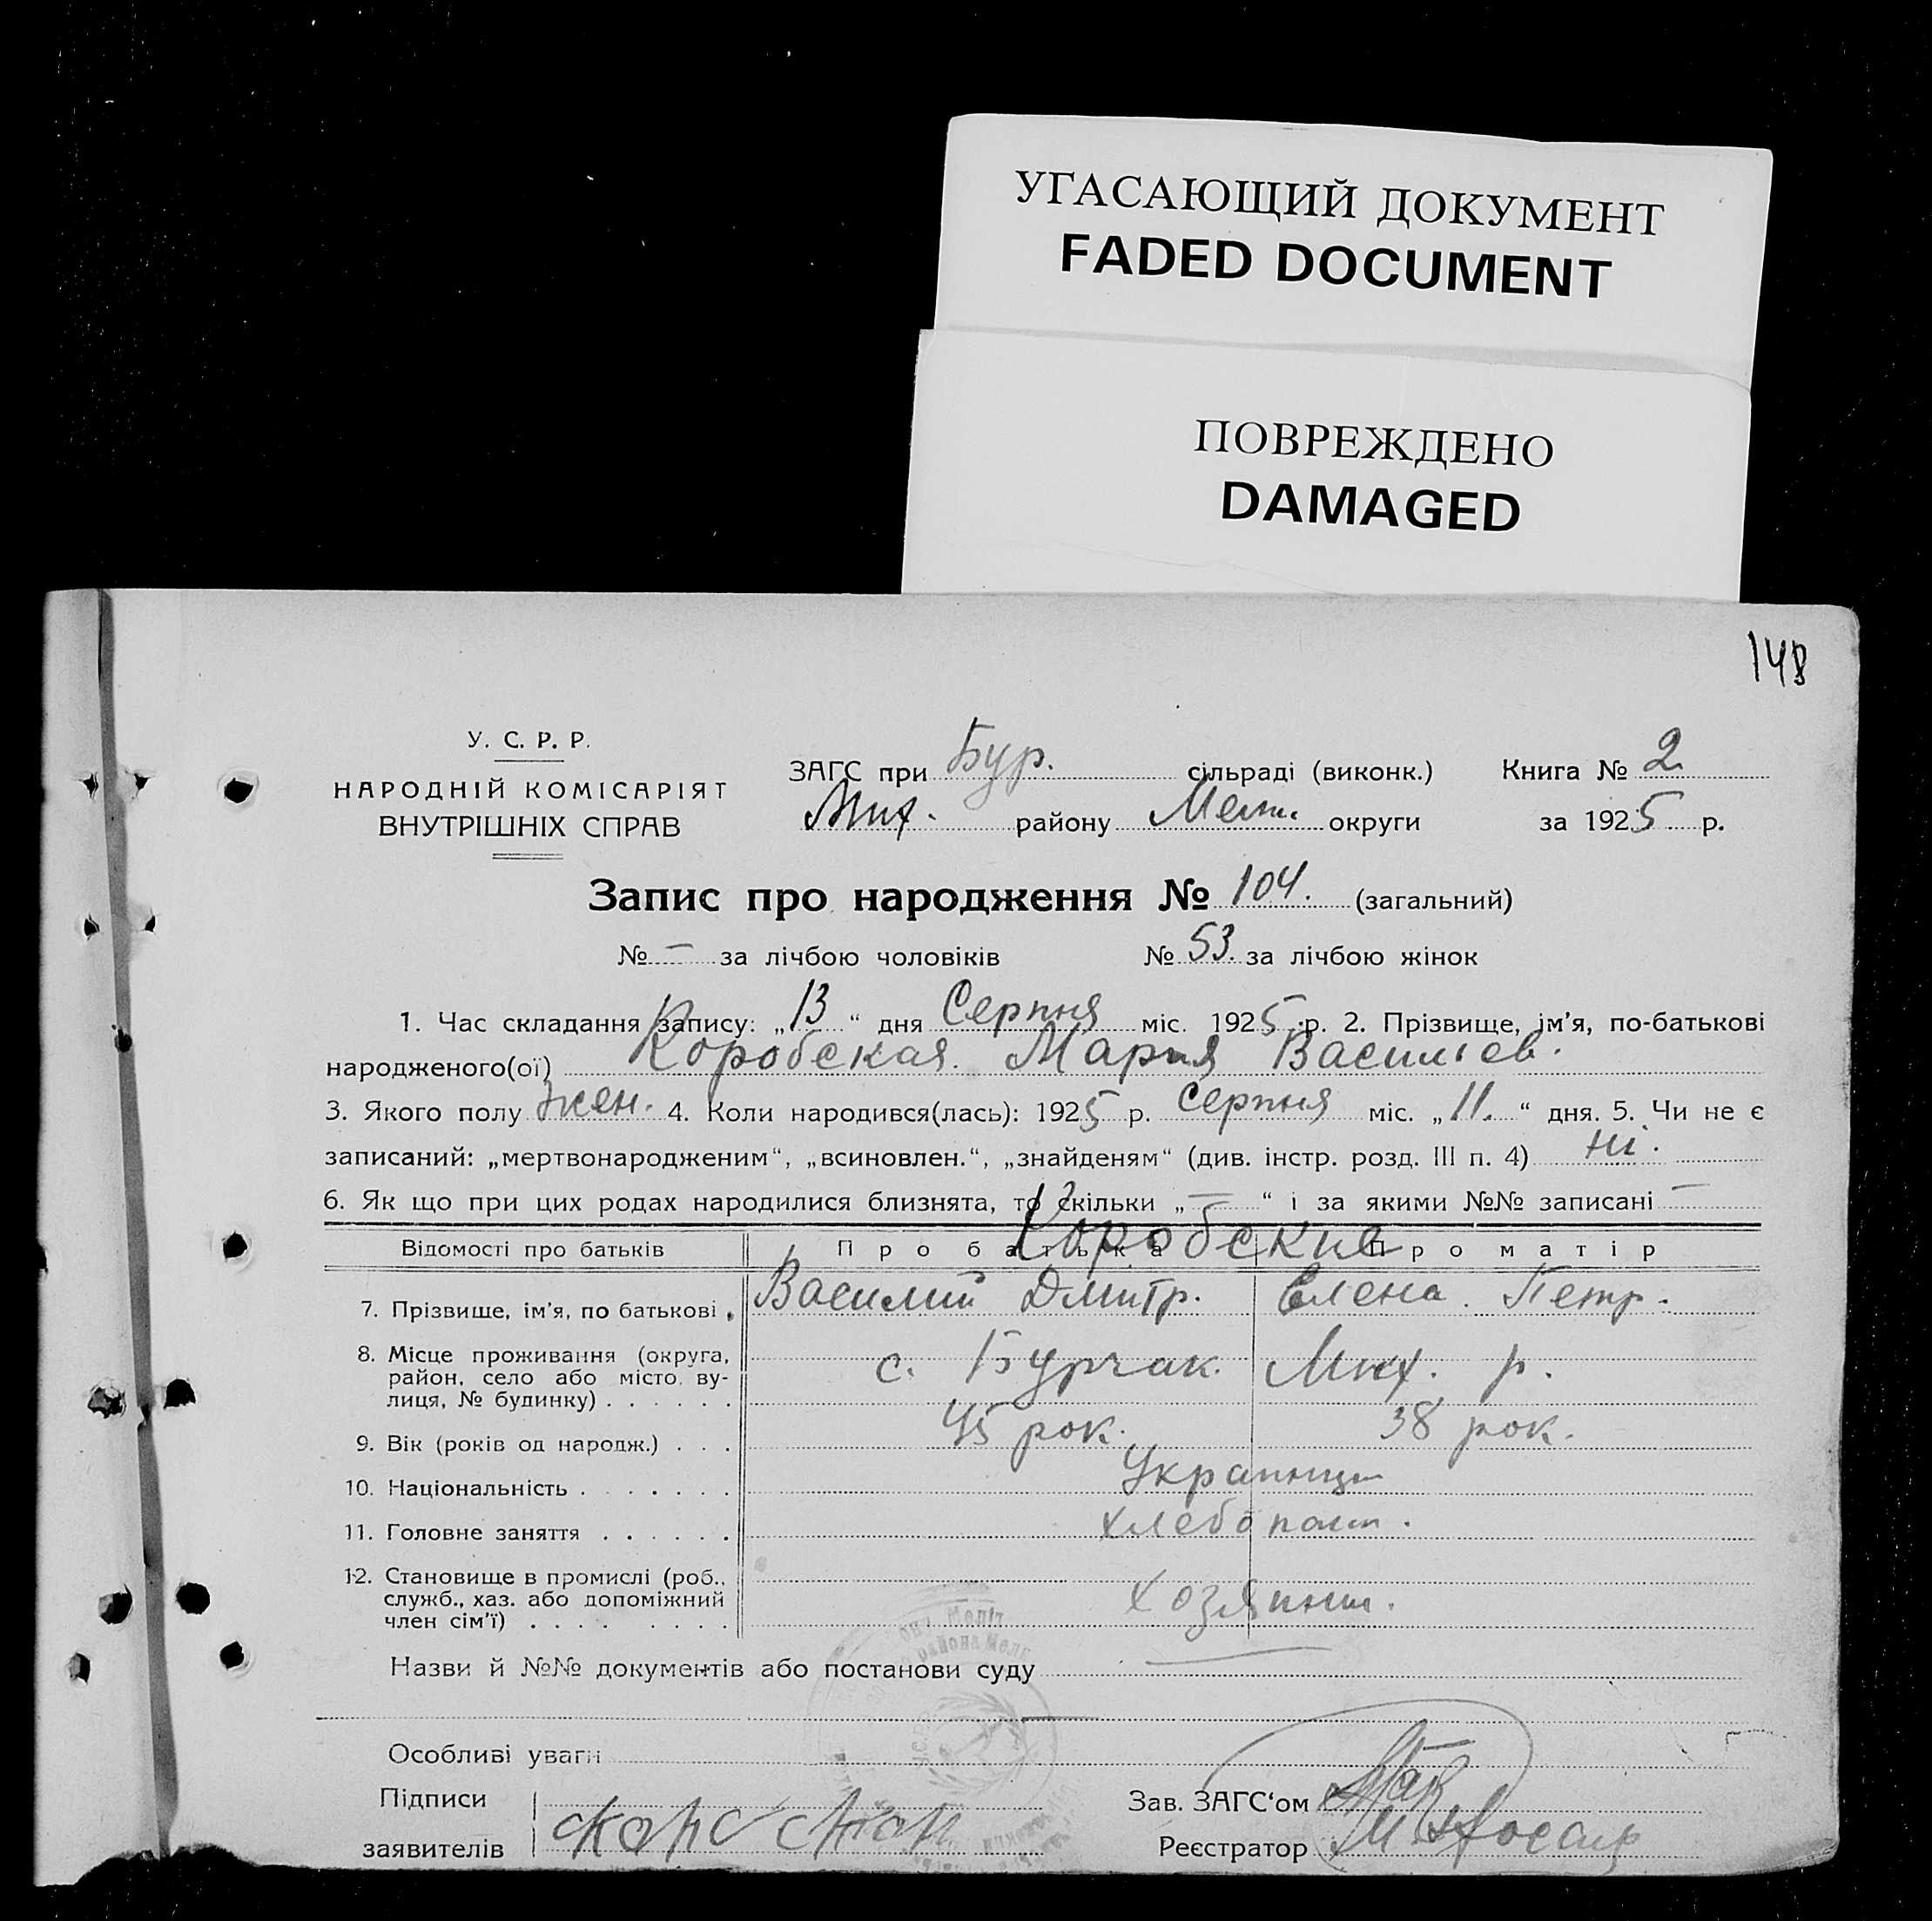 УГАСАЮЩИЙ ДОКУМЕНТ
FADED DOCUMENT
ПОВРЕЖДЕНО
DAMAGED
148
У. С. Р. Р.
НАРОДНІЙ КОМІСАРІЯТ
ВНУТРІШНІХ СПРАВ
ЗАГС при Бур. сільраді (виконк.) Книга № 2
Мих. району Мелит. округи за 1925 р.
Запис про народження № 104. (загальний)
№ — за лічбою чоловіків № 53. за лічбою жінок
1. Час складання запису: „13“ дня Серпня міс. 1925 р. 2. Прізвище, ім’я, по-батькові
народженого(ої) Коробская. Мария Васильев.
3. Якого полу жен. 4. Коли народився(лась): 1925 р. Серпня міс. „11.“ дня. 5. Чи не є
записаний: „мертвонародженим“, „всиновлен.“, „знайденям“ (див. інстр. розд. III п. 4) ні.
6. Як що при цих родах народилися близнята, то скільки „—“ і за якими №№ записані —
Відомості про батьків Про батька Про матір
Коробские
7. Прізвище, ім’я, по батькові. Василий Дмитр. Елена. Петр.
8. Місце проживання (округа, район, село або місто, вулиця, № будинку) . . . . . . с. Бурчак. Мих. р.
9. Вік (років од народж.) . . . 45 рок. 38 рок.
10. Національність . . . . . . . Украинцы
11. Головне заняття . . . . . . хлебопаш.
12. Становище в промислі (роб., служб., хаз. або допоміжний член сім’ї) . . . . . . . . хозяины.
Назви й №№ документів або постанови суду
Особливі уваги
Підписи
заявителів
Зав. ЗАГС‘ом
Реєстратор